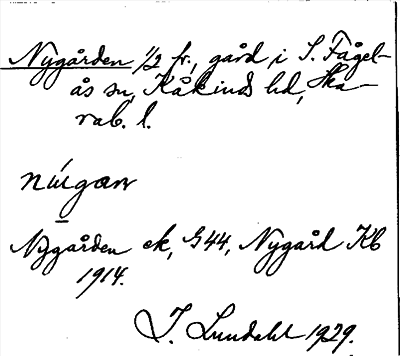 Nygården 1/2 fr., gård i S. Fågel-
ås sn, Kåkinds hd, Ska-
rab. l.
nú̱gan
Nygården ek, G44, Nygård Kb
1914.
I. Lundahl 1929.